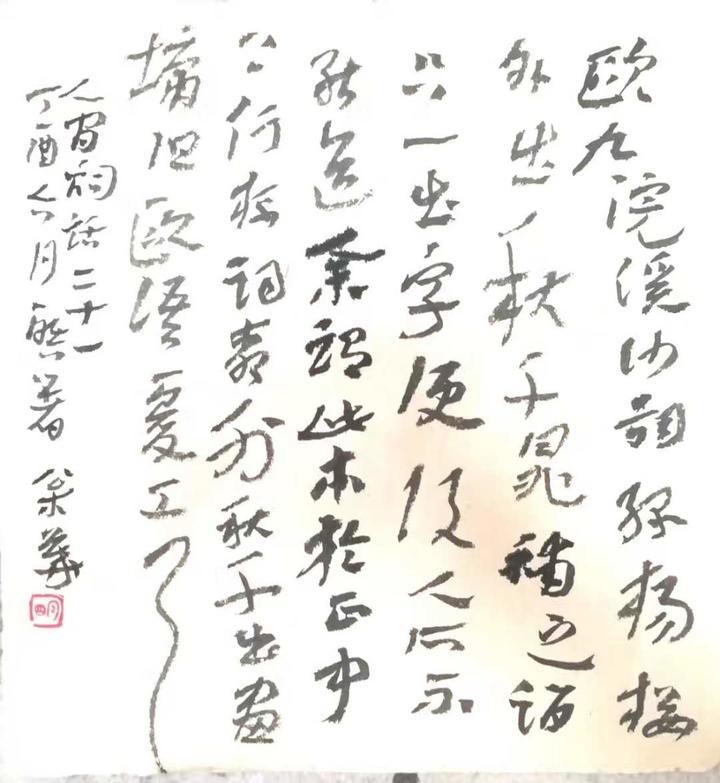 歐九浣溪沙詞綠楊樓
外出秋千晁補之謂
只一出字便後人所不
能道余謂此本於正中
上行杯詞柳外秋千出畫
墻但歐語工耳
人間詞話二十一
丁酉六月